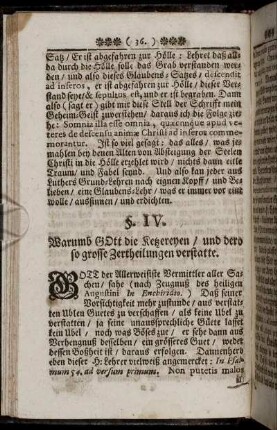 ( 36. )
Satz / Er ist abgefahren zur Hölle: Lehret daß all-
da durch die Hölle solle das Grab verstanden wer-
den / und also dieses Glaubens-Satzes / descendit
ad inferos, er ist abgefahren zur Hölle / dieser Ver-
stand seye / & sepultus est, und er ist begraben. Dann
also (sagt er) gibt mir diese Stell der Schrifft mein
Geheim-Geist zuverstehen / daraus ich die Folge zie-
he: Somnia illa esse omnia, quæcunque apud ve-
teres de descensu animæ Christi ad inferos comme-
morantur. Ist so viel gesagt: das alles / was je-
mahlen bey denen Alten von Absteigung der Seelen
Christi in die Hölle erzehlet wird / nichts dann eitle
Traum / und Fabel seynd. Und also kan jeder aus
Luthers Grundsätzen nach eignem Kopff / und Be-
lieben / eine Glaubens-Lehr / was er immer vor eine
wolle / aussinnen / und erdichten.
§. IV.
Warumb GOtt die Ketzereyen / und dero
so grosse Zertheilungen verstatte.
GOTT der Allerweißiste Vermittler aller Sa-
chen / sahe (nach Zeugnuß des heiligen
Augustini In Enchiridio.) Daß seiner
Vorsichtigkeit mehr zustunde / aus verstat-
ten Ublen Guetes zu verschaffen / als keine Ubel zu
verstatten / ja seine unaussprechliche Güete lasset
kein Ubel / noch was Böses zu / er sehe dann aus
Verhengnuß desselben / ein grösseres Guet / weder
dessen Boßheit ist / daraus erfolgen. Dannenhero
eben dieser H: Lehrer weißist angemercket: In Psal-
mum 54. ad versum primum. Non putetis malos